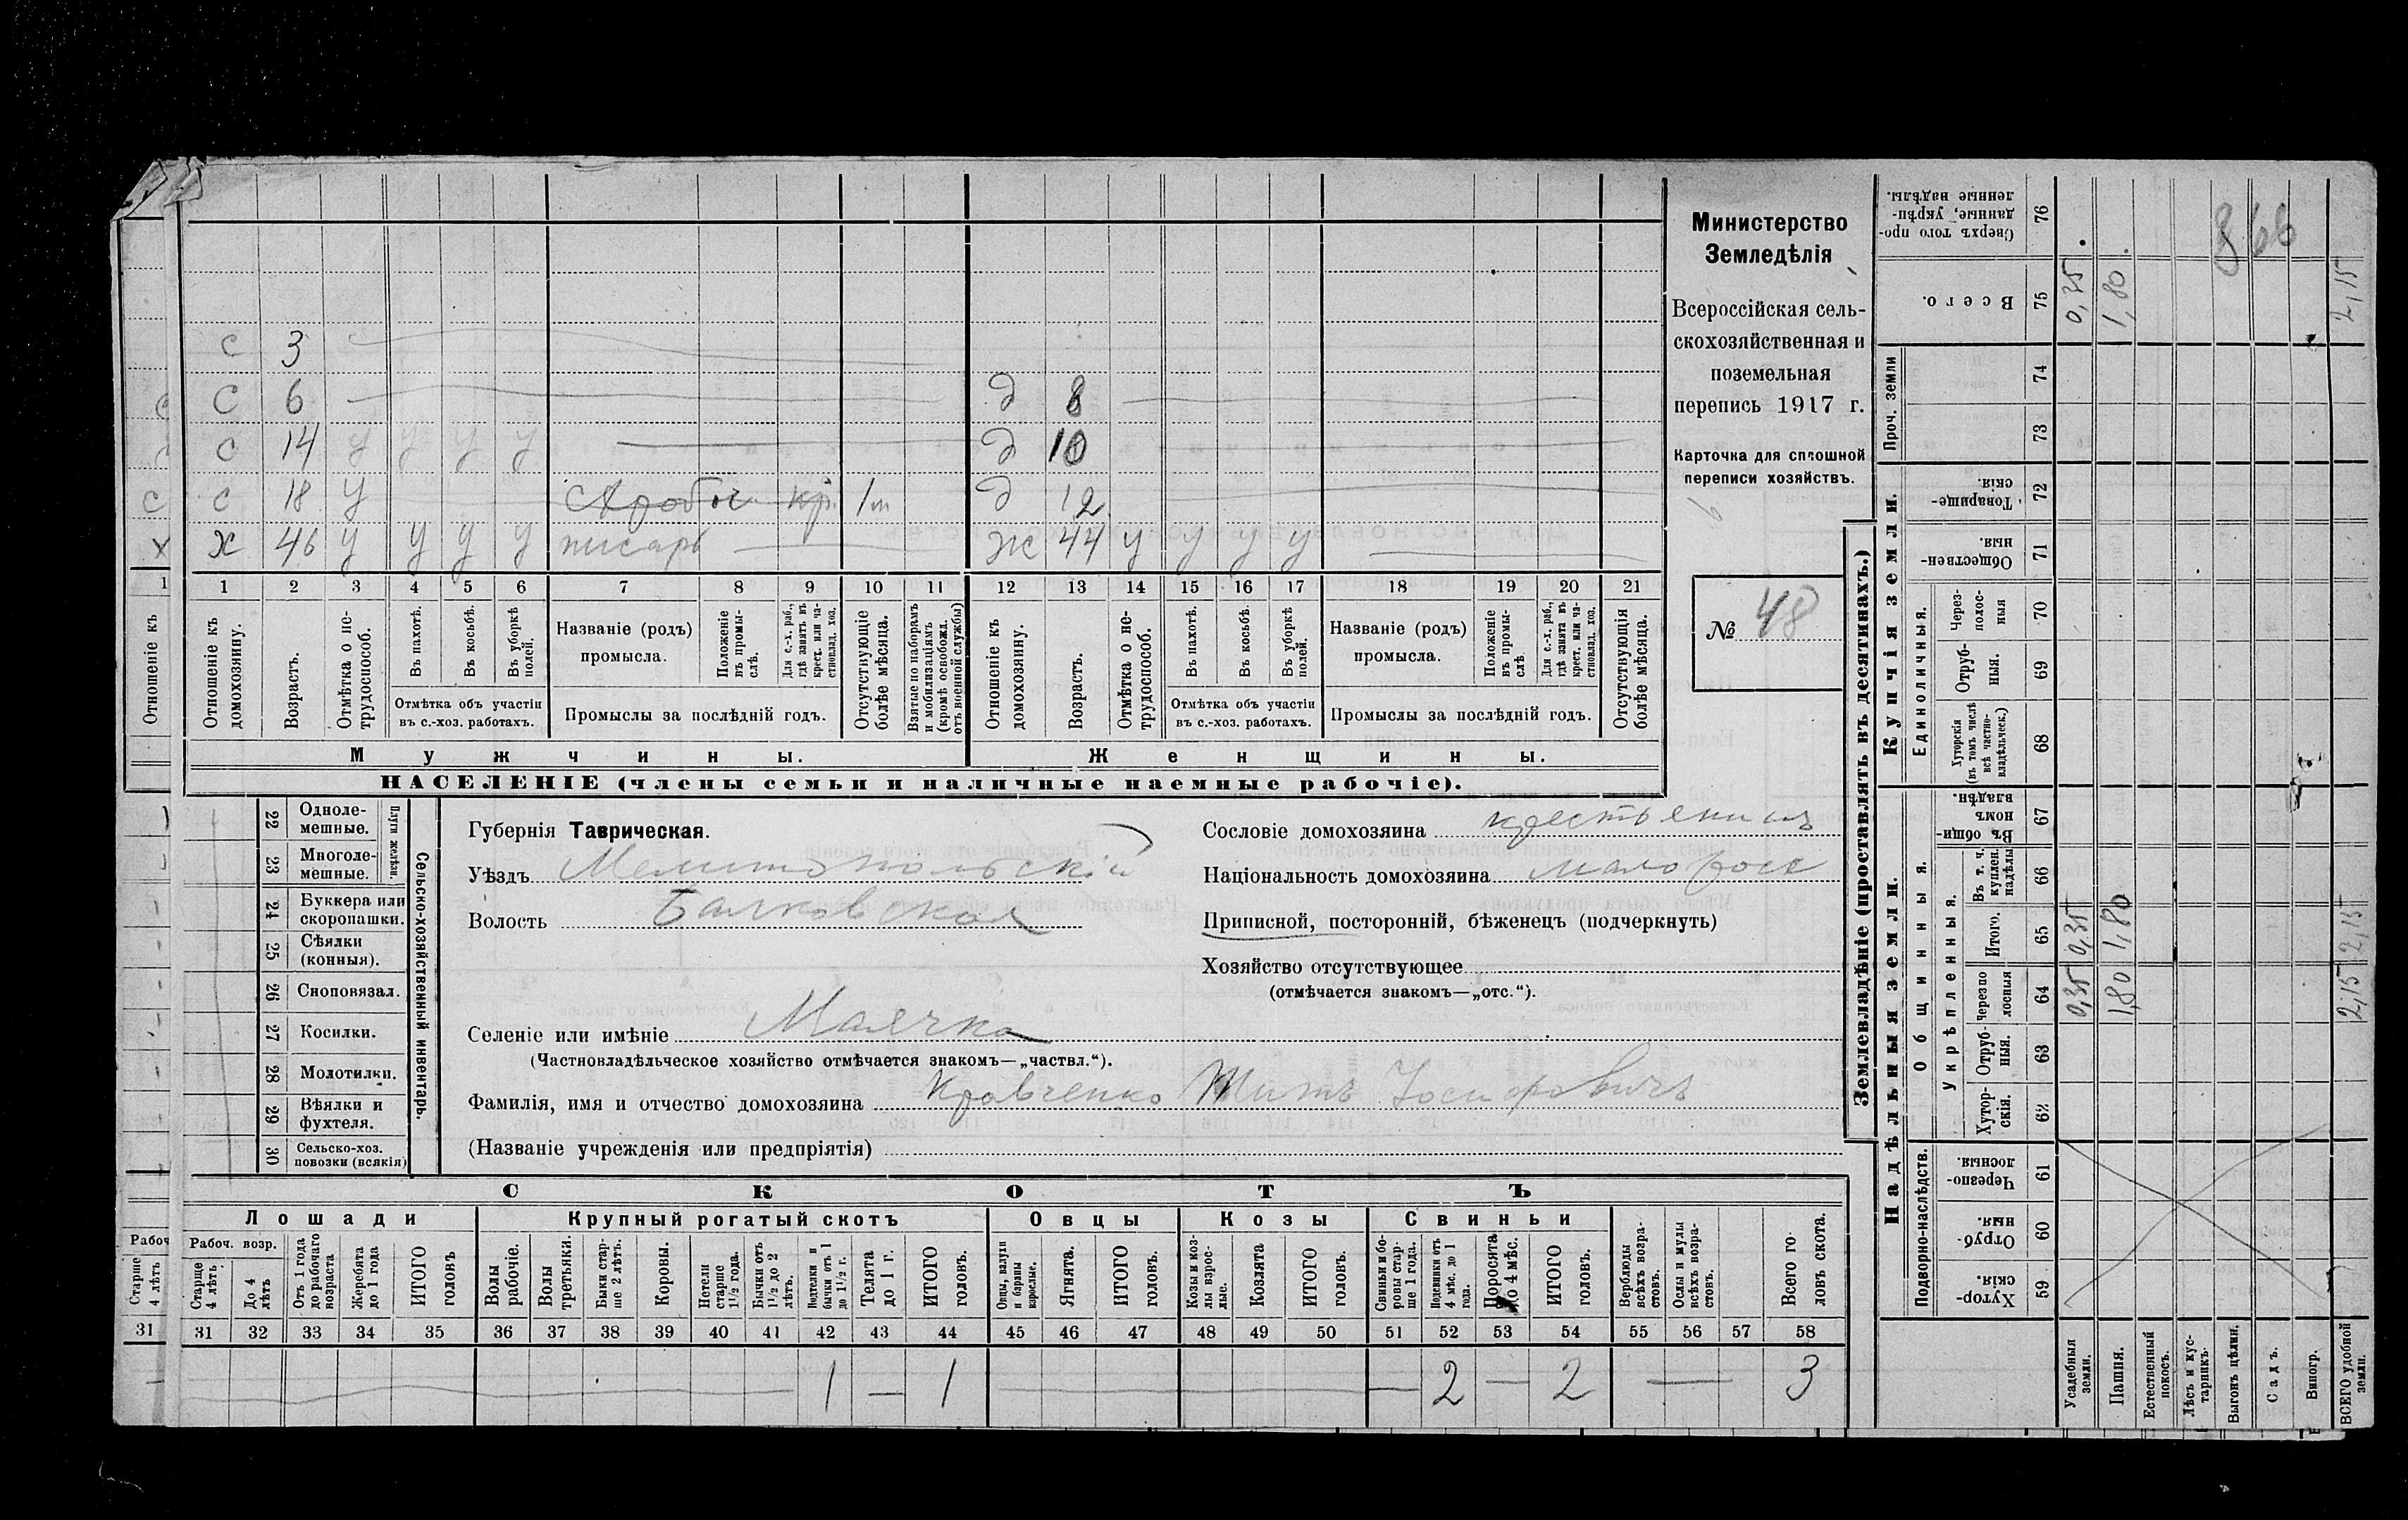 с 3
с 6 д 8
с 14 у у у у д 10
с 18 у кр. 1 м д 12
х 46 у у у у писарь ж 44 у у у у
1 2 3 4 5 6 7 8 9 10 11 12 13 14 15 16 17 18 19 20 21
Отношеніе къ домохозяину.
Возрастъ.
Отмѣтка о нетрудоспособ.
Въ пахотѣ.
Въ косьбѣ.
Въ уборкѣ полей.
Отмѣтка объ участіи
въ с.-хоз. работахъ.
Названіе (родъ)
промысла.
Положеніе въ промыслѣ.
Для с.-х. раб., гдѣ занятъ въ крест. или частновлад. хоз.
Промыслы за послѣдній годъ.
Отсутствующіе болѣе мѣсяца.
Взятые по наборамъ и мобилизаціямъ (кромѣ освобожд. отъ военной службы)
Отношеніе къ домохозяину.
Возрастъ.
Отмѣтка о нетрудоспособ.
Въ пахотѣ.
Въ косьбѣ.
Въ уборкѣ полей.
Отмѣтка объ участіи
въ с.-хоз. работахъ.
Названіе (родъ)
промысла.
Положеніе въ промыслѣ.
Для с.-х. раб., гдѣ занята въ крест. или частновлад. хоз.
Промыслы за послѣдній годъ.
Отсутствующія болѣе мѣсяца.
Мужчины.
Женщины.
НАСЕЛЕНІЕ (члены семьи и наличные наемные рабочіе).
Министерство
Земледѣлія
Всероссійская сель-
скохозяйственная и
поземельная
перепись 1917 г.
Карточка для сплошной
переписи хозяйствъ.
№ 48
22 Одноле-
мешные.
23 Многоле-
мешные.
Плуги желѣзн.
24 Буккера или
скоропашки.
25 Сѣялки
(конныя).
26 Сноповязал.
27 Косилки.
28 Молотилки.
29 Вѣялки и
фухтеля.
30 Сельско-хоз.
повозки (всякія)
Сельско-хозяйственный инвентарь.
Губернія Таврическая.
Уѣздъ Мелитопольскій
Волость Балковская
Сословіе домохозяина крестьянинъ
Національность домохозяина малорос
Приписной, посторонній, бѣженецъ (подчеркнуть)
Хозяйство отсутствующее
(отмѣчается знакомъ—„отс.“).
Селеніе или имѣніе Маячка
(Частновладѣльческое хозяйство отмѣчается знакомъ—„частвл.“).
Фамилія, имя и отчество домохозяина Кравченко Титъ Іосифовичъ
(Названіе учрежденія или предпріятія)
СКОТЪ
Лошади
Крупный рогатый скотъ
Овцы
Козы
Свиньи
Рабоч. возр.
Старше 4 лѣтъ
До 4 лѣтъ
Отъ 1 года до рабочаго возраста
Жеребята до 1 года
ИТОГО головъ
Волы рабочіе.
Волы третьяки.
Быки старше 2 лѣтъ.
Коровы.
Нетели старше 1½ года.
Бычки отъ 1½ до 2 лѣтъ.
Подтелки и бычки отъ 1 до 1½ г.
Телята до 1 г.
ИТОГО головъ.
Овцы, валухи и бараны взрослые.
Ягнята.
ИТОГО головъ.
Козы и козлы взрослые.
Козлята
ИТОГО головъ.
Свиньи и боровы старше 1 года.
Подсвинки отъ 4 мѣс. до 1 года.
Поросята до 4 мѣс.
ИТОГО головъ.
Верблюды всѣхъ возрастовъ.
Ослы и мулы всѣхъ возрастовъ.
Всего головъ скота.
31 32 33 34 35 36 37 38 39 40 41 42 43 44 45 46 47 48 49 50 51 52 53 54 55 56 57 58
1 — 1 — 2 — 2 — 3
Землевладѣніе (проставлять въ десятинахъ.)
Надѣльныя земли.
Купчія земли.
Проч. земли
Сверхъ того проданные, укрѣпленные надѣлы. 76
Всего. 75 0,35 1,80 2,15
74
73
Товарищескія. 72
Общественныя. 71
Единоличныя.
Черезполосныя 70
Отрубныя. 69
Хуторскія (въ томъ числѣ всѣ частновладѣльческ.) 68
Общинныя.
Въ общинномъ владѣн. 67
Укрѣпленныя.
Въ т. ч. куплен. надѣлы 66
Итого. 65 0,35 1,80 2,15
Черезполосныя 64 0,35 1,80 2,15
Отрубныя. 63
Хуторскія. 62
Подворно-наслѣдств.
Черезполосныя. 61
Отрубныя. 60
Хуторскія. 59
Усадебныя земли.
Пашня.
Естественный покосъ.
Лѣсъ и кустарникъ.
Выгонъ цѣлин.
Садъ.
Виногр.
ВСЕГО удобной земли.
866
Отношеніе къ
1
с
х
Рабоч
Старше 4 лѣтъ
31